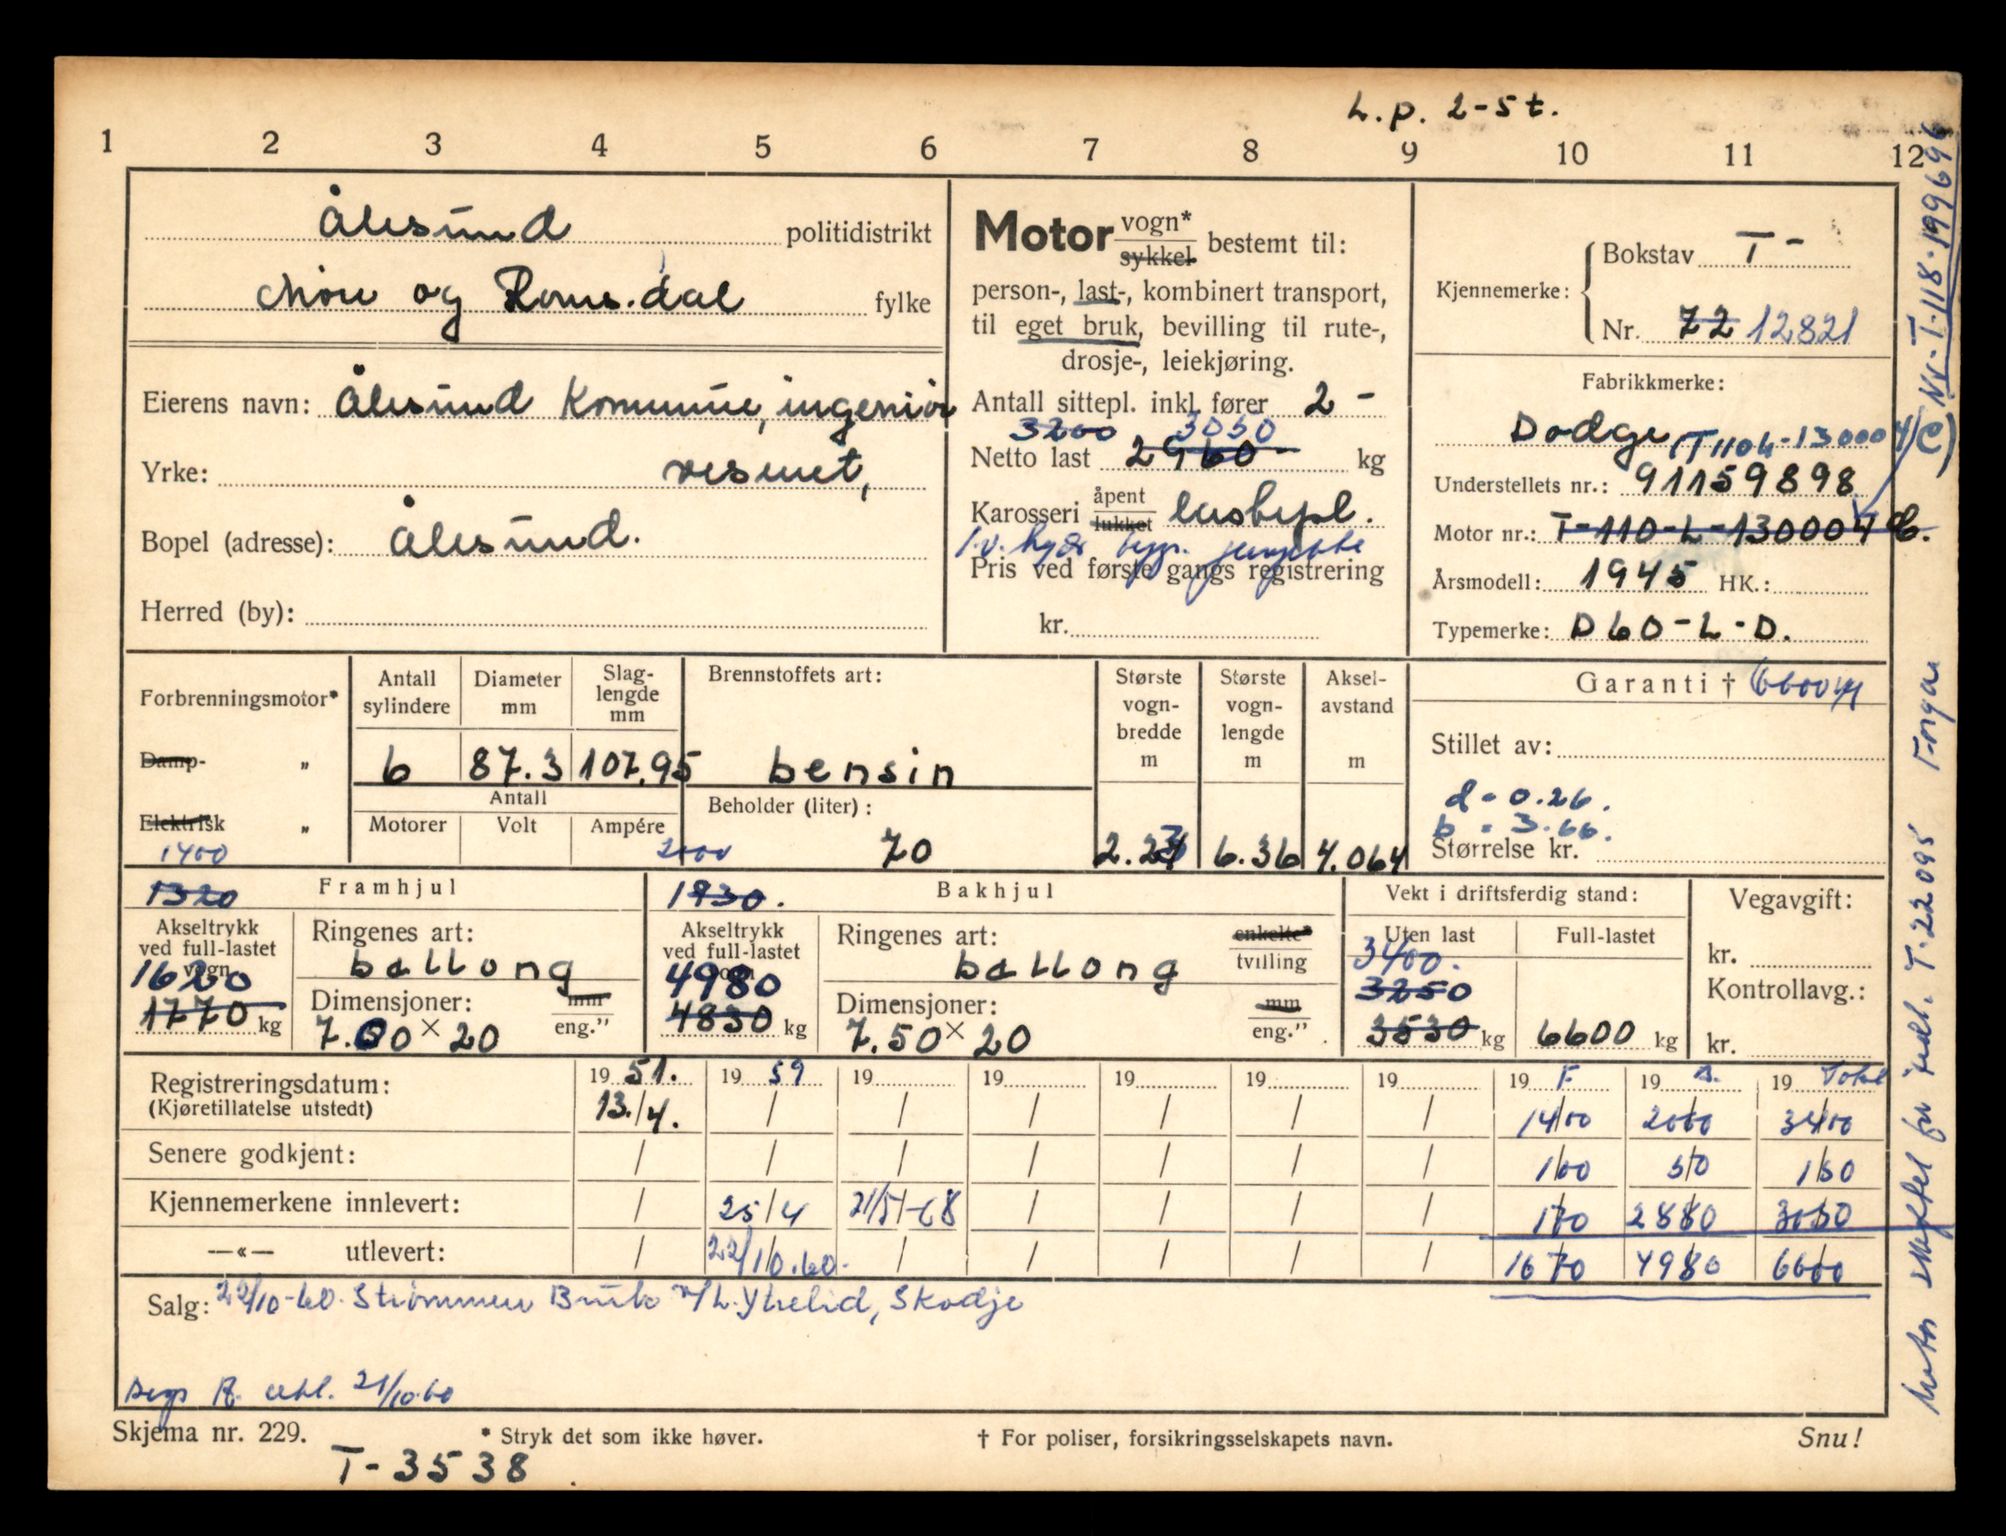 L.p. 2-5 t.
1 2 3 4 5 6 7 8 9 10 11 12
Ålesund politidistrikt
Møre og Romsdal fylke
Eierens navn: Ålesund Kommune, ingeniør
Yrke: vesenet,
Bopel (adresse): Ålesund.
Herred (by):
Motor vogn* sykkel bestemt til:
person-, last-, kombinert transport,
til eget bruk, bevilling til rute-,
drosje-, leiekjøring.
Antall sittepl. inkl. fører 2 -
3200 3050
Netto last 2960 - kg
Karosseri åpent lukket lastepl.
Pris ved første gangs registrering
kr.
Kjennemerke: Bokstav T -
Nr. 72 12821
Fabrikkmerke:
Dodge (T110L-130004 C)
Understellets nr.: 91159898
Motor nr.: T-110-L-130004 C.
Årsmodell: 1945 HK.:
Typemerke: D60-L-D.
Forbrenningsmotor*
Damp- „
Elektrisk „
Antall sylindere Diameter mm Slag-lengde mm
6 87.3 107.95
Antall
Motorer Volt Ampére
Brennstoffets art:
bensin
Beholder (liter):
70
Største vogn-bredde m
2.23
Største vogn-lengde m
6.36
Aksel-avstand m
4.064
Garanti †
Stillet av:
d = 0.26.
b = 3.66.
Størrelse kr.
1400
1320 Framhjul
Akseltrykk ved full-lastet vogn
1620
1770 kg
Ringenes art:
ballong
Dimensjoner: mm eng."
7.00 × 20
2000
1930. Bakhjul
Akseltrykk ved full-lastet vogn
4980
4830 kg
Ringenes art: enkelte* tvilling
ballong
Dimensjoner: mm eng."
7.50 × 20
Vekt i driftsferdig stand:
Uten last Full-lastet
3400.
3250
3530 kg 6600 kg
Vegavgift:
kr.
Kontrollavg.:
kr.
Registreringsdatum: 19 51. 19 59 19 19 19 19 19 19 F. 19 B. 19 Total
(Kjøretillatelse utstedt) 13./4. / / / / / / 1400 2000 3400
Senere godkjent: / / / / / / / 100 50 150
Kjennemerkene innlevert: / 25/4 21/5-68 / / / / 170 2880 3050
—«— utlevert: / 22/10.60. / / / / / 1670 4980 6600
Salg: 22/10-60. Strømmen Bruk v/L. Ytrelid, Skodje
21/10.60
Skjema nr. 229.
* Stryk det som ikke høver.
† For poliser, forsikringsselskapets navn.
Snu!
T-3538
Motor skiftet fra T-22095
Nr. T-118-199696